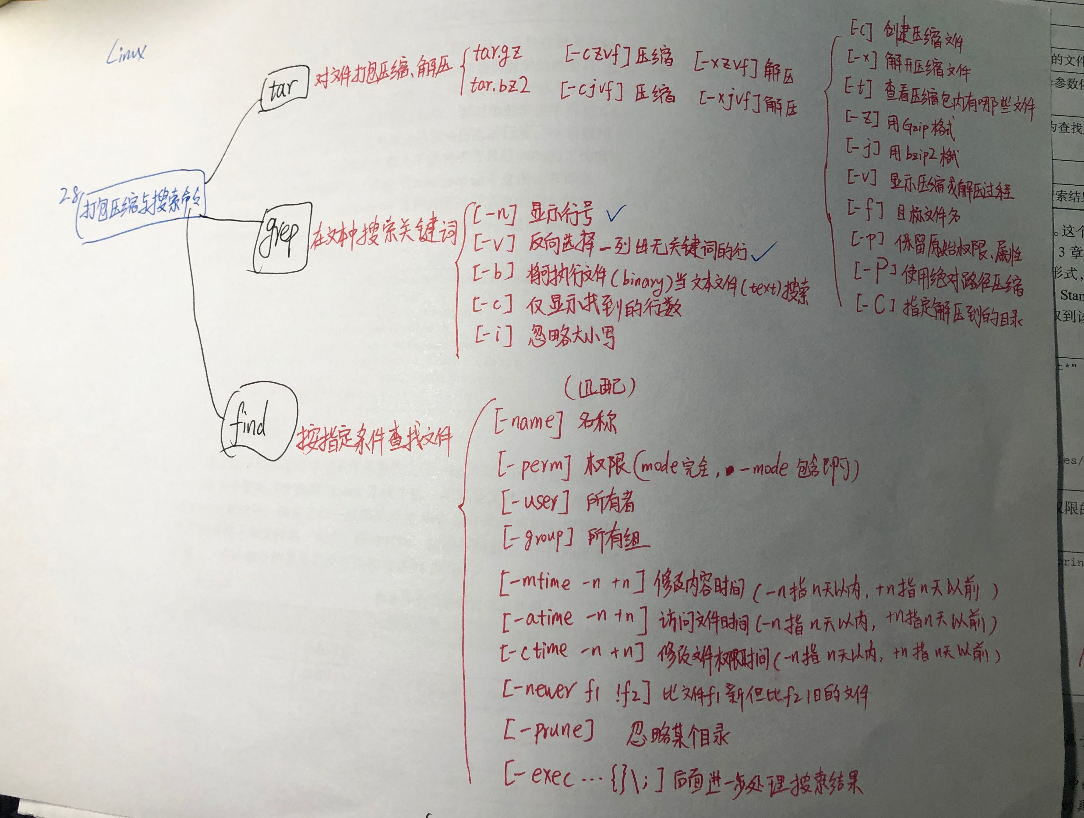 Linux
2.8 打包压缩与搜索命令
tar 对文件打包压缩、解压
tar.gz [-czvf] 压缩 [-xzvf] 解压
tar.bz2 [-cjvf] 压缩 [-xjvf] 解压
[-c] 创建压缩文件
[-x] 解开压缩文件
[-t] 查看压缩包内有哪些文件
[-z] 用Gzip格式
[-j] 用bzip2格式
[-v] 显示压缩或解压过程
[-f] 目标文件名
[-p] 保留原始权限、属性
[-P] 使用绝对路径压缩
[-C] 指定解压到的目录
grep 在文本中搜索关键词
[-n] 显示行号 ✓
[-v] 反向选择—列出无关键词的行 ✓
[-b] 将可执行文件(binary)当文本文件(text)搜索
[-c] 仅显示找到的行数
[-i] 忽略大小写
find 按指定条件查找文件
(匹配)
[-name] 名称
[-perm] 权限(mode完全, -mode 包含即可)
[-user] 所有者
[-group] 所有组
[-mtime -n +n] 修改内容时间(-n指n天以内, +n指n天以前)
[-atime -n +n] 访问文件时间(-n指n天以内, +n指n天以前)
[-ctime -n +n] 修改文件权限时间(-n指n天以内, +n指n天以前)
[-newer f1 !f2] 比文件f1新但比f2旧的文件
[-prune] 忽略某个目录
[-exec …{}\;] 后面进一步处理搜索结果
的文件
参数
为查找
搜索结果
。这个
3 章
形式，
Stan
权限的